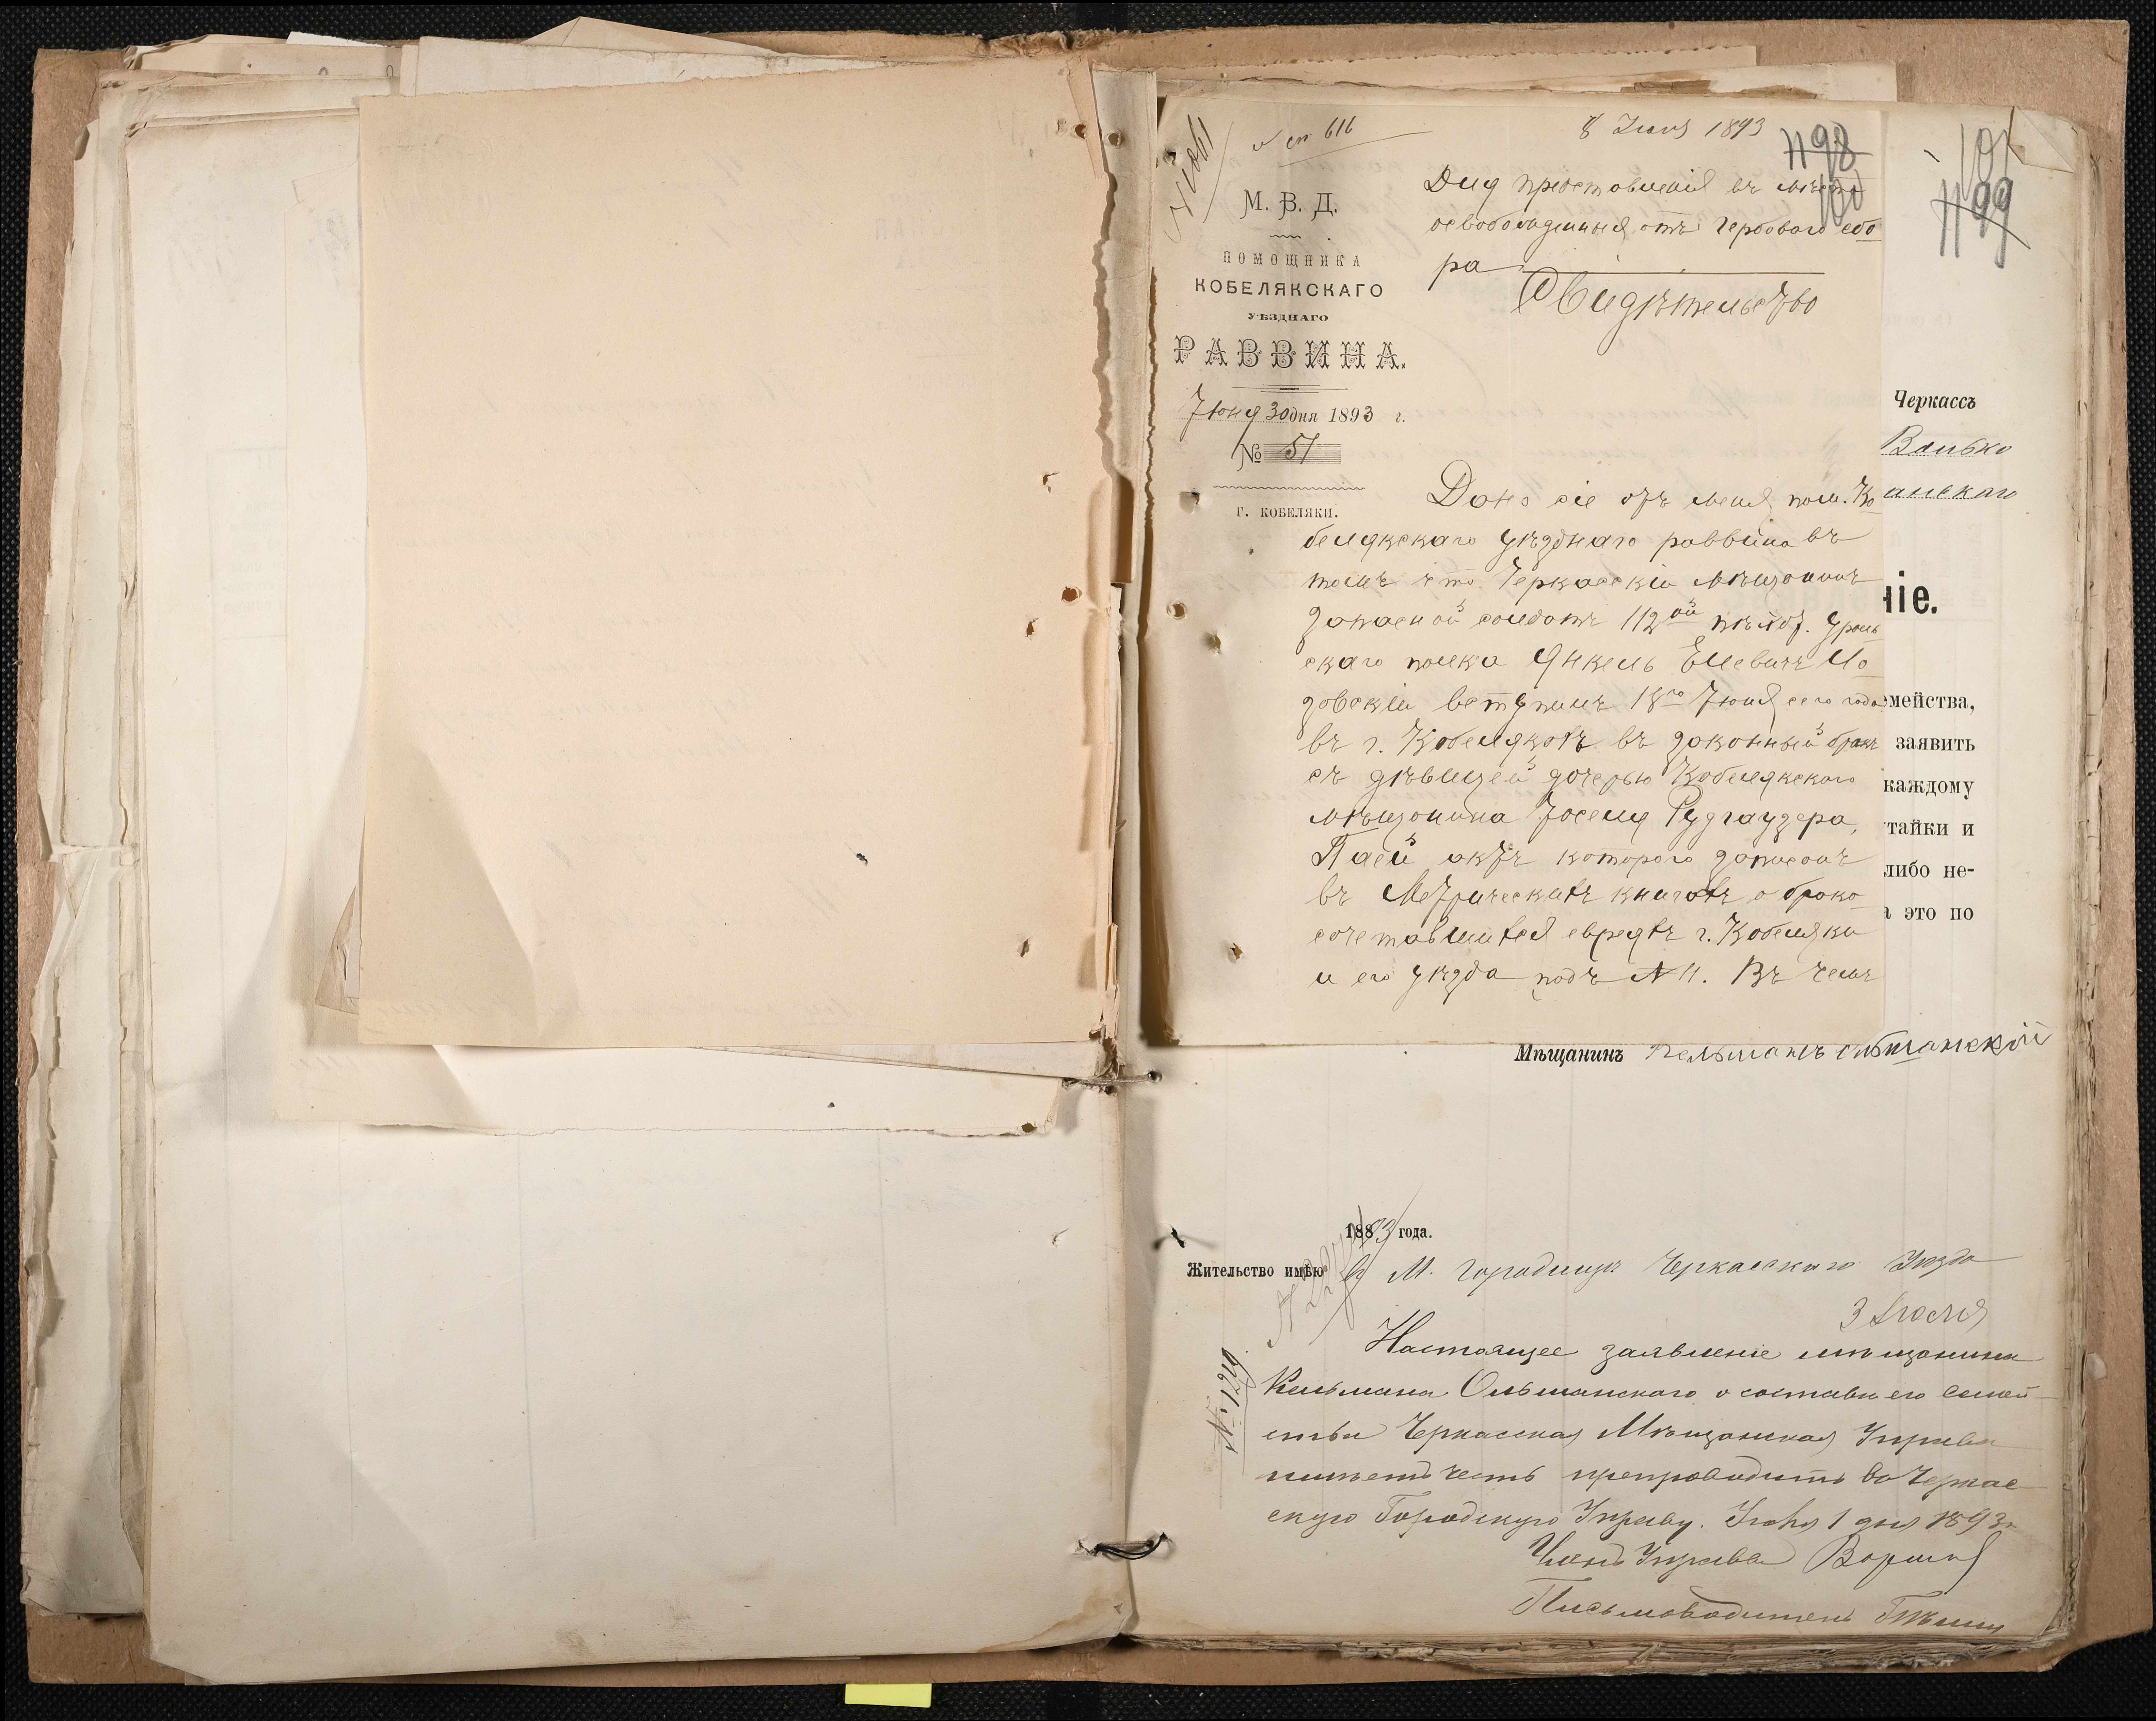 № 1061
к ст 616
8 Июля 1893
98
100
М. В. Д.
ПОМОЩНИКА
КОБЕЛЯКСКАГО
УѢЗДНАГО
РАВВИНА.
Июня 30 дня 1893 г.
№ 51
г. КОБЕЛЯКИ.
Для предтовленія въ мѣста
освобожденныя отъ гербоваго сбо
ра
Свидѣтельство
Дано сіе отъ меня пом. Ко
белякскаго уѣзднаго раввина въ
томъ что Черкасскій мѣщанинъ
запасной солдатъ 112ой пѣхот. Ураль
скаго полка Янкель Елевичъ Ло
зовскій вступилъ 18го Июня сего года
въ г. Кобелякахъ въ законный бракъ
съ дѣвицей дочерью Кобелякского
мѣщанина Иоселя Рудгаузера,
Пасей актъ которого записанъ
въ Метрическихъ книгахъ о брако
сочетавшихся евреяхъ г. Кобеляки
и его уѣзда подъ № 11. Въ чемъ
101
99
Черкассъ
Валько
анскаго
ніе.
мейства,
заявить
каждому
тайки и
либо не-
а это по
Мѣщанинъ Кельманъ Ольшанскій
1883 года.
Жительство имѣю в М. Городищѣ Черкасскаго Уѣзда
3 Июля
№ 1219
Настоящее заявленіе мѣщанина
Кельмана Ольшанскаго о составѣ его семей
ства Черкасская Мѣщанская Управа
имѣетъ честь препроводить въ Черкас
скую Городскую Управу. Июля 1 дня 1893 г.
Членъ Управы
Письмоводитель